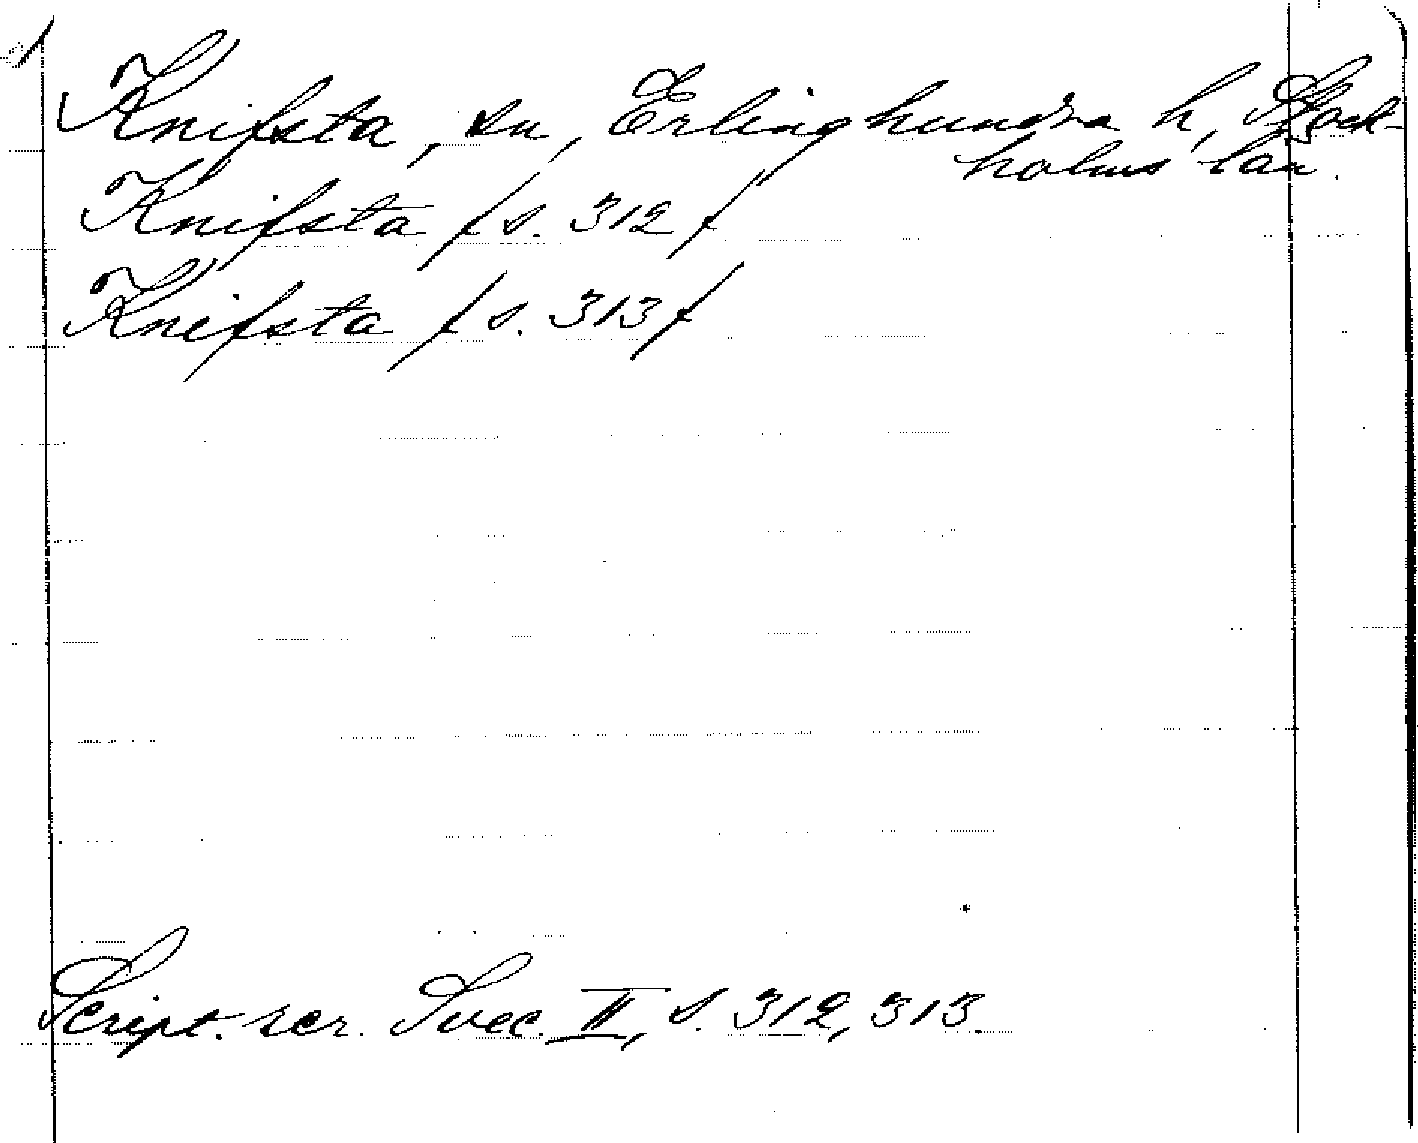 Knifsta, sn, Erlinghundra h, Stock-
holms län.
Knifsta / s. 312 /
Knifsta / s. 313 /
Script. rer. Svec. II, s. 312, 313.